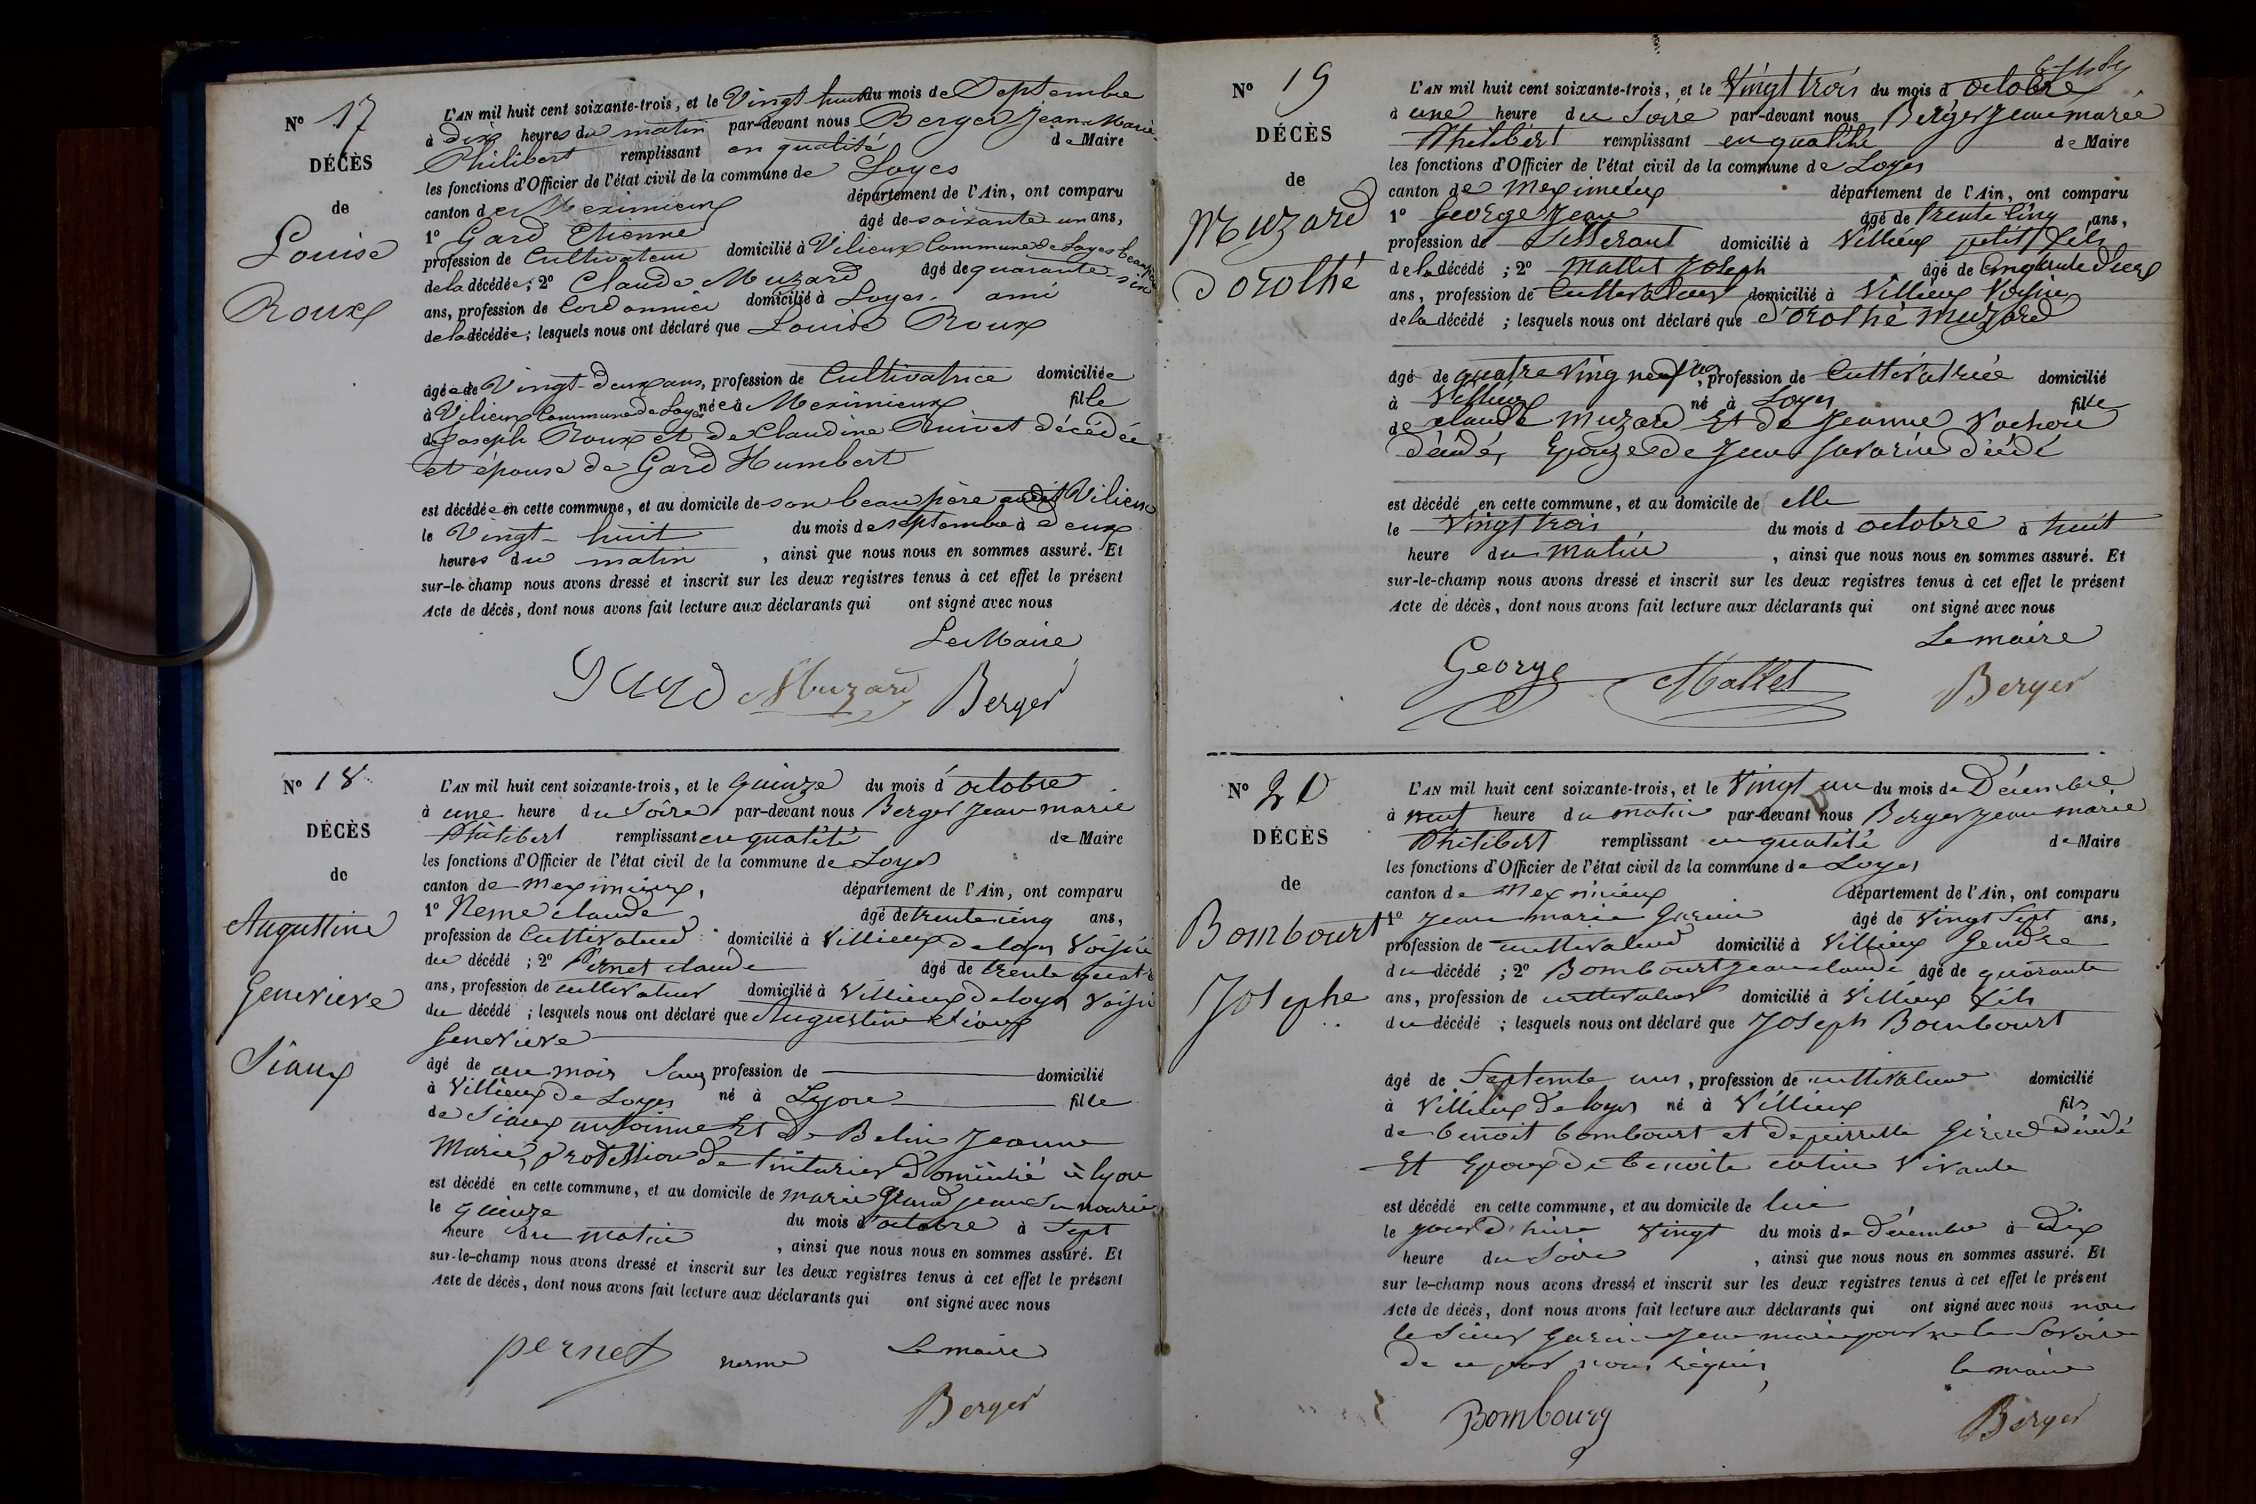 N° 17
DÉCÈS
de
Louise
Roux
L'AN mil huit cent soixante-trois, et le Vingt huit du mois de Septembre
à dix heures du matin par-devant nous Berger Jean-Marie
Philibert remplissant en qualité de Maire
les fonctions d'Officier de l'état civil de la commune de Loyes
canton de Meximieux département de l'Ain, ont comparu
1° Gard Etienne âgé de soixante un ans,
profession de Cultivateur domicilié à Vilieux Commune de Loyes beau père
de la décédée; 2° Claude Muzard âgé de quarante-six
ans, profession de Cordonnier domicilié à Loyes. ami
de la décédée; lesquels nous ont déclaré que Louise Roux
âgée de Vingt-deux ans, profession de Cultivatrice domiciliée
à Vilieux Commune de Loyes née à Meximieux fille
de Joseph Roux et de Claudine Ruivet décédée
et épouse de Gard Humbert
est décédée en cette commune, et au domicile de son beau père audit Vilieux
le Vingt-huit du mois de septembre à deux
heures du matin, ainsi que nous nous en sommes assuré. Et
sur-le-champ nous avons dressé et inscrit sur les deux registres tenus à cet effet le présent
Acte de décès, dont nous avons fait lecture aux déclarants qui ont signé avec nous
Le Maire
Gard Muzard Berger
N° 18
DÉCÈS
de
Augustine
Genevieve
Siaux
L'AN mil huit cent soixante-trois, et le quinze du mois d'octobre
à une heure du Soire par-devant nous Berger Jean marie
Philibert remplissant en qualité de Maire
les fonctions d'Officier de l'état civil de la commune de Loyes
canton de meximieux, département de l'Ain, ont comparu
1° Neme claude âgé de trente cinq ans,
profession de Cultivateur domicilié à Villieux de loyes Voisin
du décédé; 2° Pernet claude âgé de trente quatre
ans, profession de cultivateur domicilié à Villieux de loyes voisin
du décédé; lesquels nous ont déclaré que Augustine Siaux
Genevieve
âgé de un mois Sans profession de domicilié
à Villieux de Loyes né à Lyon fille
de Siaux antoinne Et de Belin Jeanne
Marie, profession de tinturier domicilié à lyon
est décédé en cette commune, et au domicile de marie Grand jean Sa nourice
le quinze du mois d'octobre à Sept
heure du matin, ainsi que nous nous en sommes assuré. Et
sur-le-champ nous avons dressé et inscrit sur les deux registres tenus à cet effet le présent
Acte de décès, dont nous avons fait lecture aux déclarants qui ont signé avec nous
pernet neme Le maire
Berger
N° 19
DÉCÈS
de
Muzard
dorothé
L'AN mil huit cent soixante-trois, et le Vingt trois du mois d octobre
à une heure du Soire par-devant nous Berger Jean marie
Philibert remplissant en qualité de Maire
les fonctions d'Officier de l'état civil de la commune de Loyes
canton de Meximieux département de l'Ain, ont comparu
1° George Jean âgé de trente cinq ans,
profession de domicilié à Villieux petit fils
de la décédé; 2° Mallet Joseph âgé de cinquante deux
ans, profession de Cultivateur domicilié à Villieux Voisin
de la décédé; lesquels nous ont déclaré que dorothé Muzard
âgé de quatre Ving neuf ans, profession de Cultivatrice domicilié
à Villieux né à Loyes fille
de claude Muzard Et de Jeanne Vachon
décédé, Epouze de Jean Savarin décédé
est décédé en cette commune, et au domicile de elle
le Vingt trois du mois d octobre à huit
heure du Matin, ainsi que nous nous en sommes assuré. Et
sur-le-champ nous avons dressé et inscrit sur les deux registres tenus à cet effet le présent
Acte de décès, dont nous avons fait lecture aux déclarants qui ont signé avec nous
Le maire
George Mallet Berger
N° 20
DÉCÈS
de
Bombourt
Josephe
L'AN mil huit cent soixante-trois, et le Vingt un du mois de Décembre
à neuf heure du matin par-devant nous Berger jean marie
Philibert remplissant en qualité de Maire
les fonctions d'Officier de l'état civil de la commune de Loyes
canton de Meximieux département de l'Ain, ont comparu
1° Jean marie Garin âgé de vingt Sept ans,
profession de cultivateur domicilié à Villieux Gendre
du décédé; 2° Bombourt jean claude âgé de quarante
ans, profession de cultivateur domicilié à Villieux fils
du décédé; lesquels nous ont déclaré que Joseph Bombourt
âgé de Septente ans, profession de cultivateur domicilié
à Villieux de loyes né à Villieux fils
de benoit bombourt et de pierrette Girard décédé
Et Epoux de benoite Vivante
est décédé en cette commune, et au domicile de lui
le jour d'hière vingt du mois de décembre à dix
heure du Soire, ainsi que nous nous en sommes assuré. Et
sur le-champ nous avons dressé et inscrit sur les deux registres tenus à cet effet le présent
Acte de décès, dont nous avons fait lecture aux déclarants qui ont signé avec nous non
le Sieur Garin Jean marie pour ne le Savoire
de ce par nous requis,
le maire
Bombourg Berger